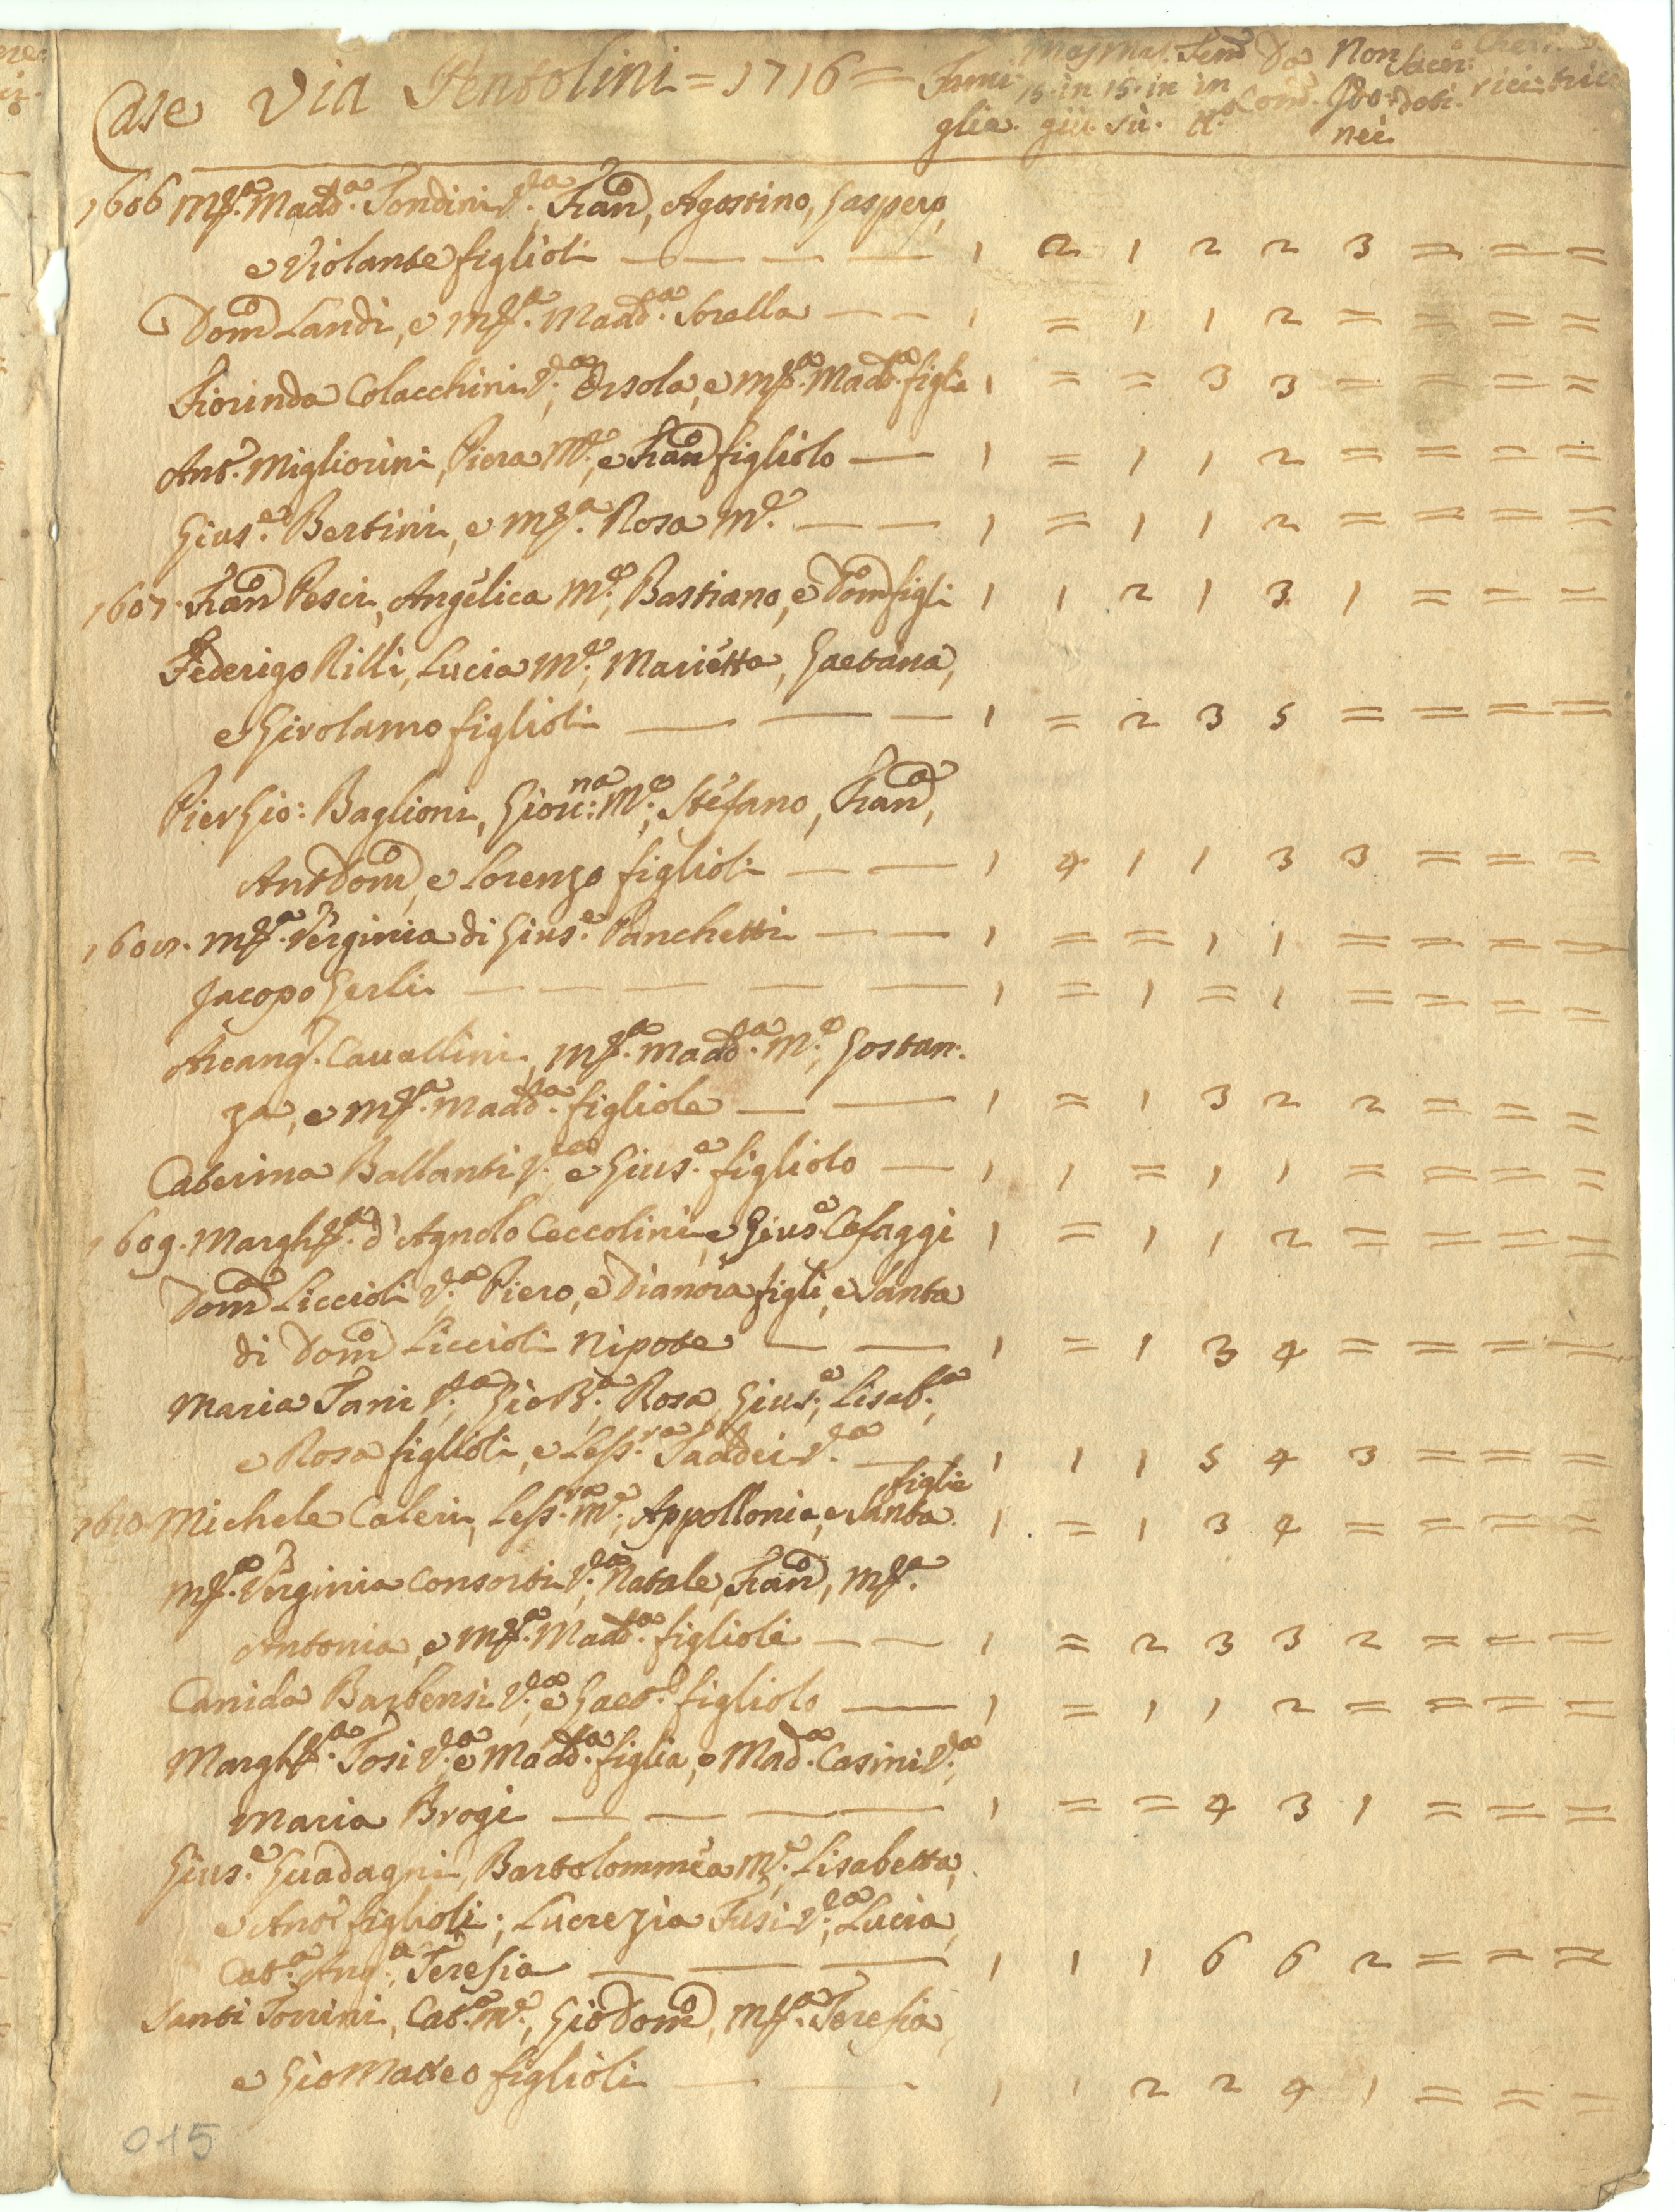 Case Via Pentolini = 1716 = Fami Mas Mas. Fem. Da Non Sacer: Cheri
glie. 15. in giù 15. in sù. in tt.º Com. Ido nei doti. rici
1606 Mª. Madd.ª Tondini V.ª Fran.º, Agostino, Gaspero,
e Violante figlioli — — — — 1 2 1 2 2 3 = = =
Dom.º Landi, e Mª. Madd.ª Sorella — — 1 = 1 1 2 = = = =
Fiorinda Colacchini V.ª, Orsola, e Mª. Madd.ª figlie 1 = = 3 3 = = = =
Ant.º Migliorini, Piera M.e, e Fran.º figliolo — 1 = 1 1 2 = = = =
Gius.e Bertini, e Mª. Rosa M.e — — 1 = 1 1 2 = = = =
1607. Fran.º Pesci, Angelica M.e, Bastiano, e Dom.º figli 1 1 2 1 3 1 = = =
Federigo Rilli, Lucia M.e, Marietta, Gaetana,
e Girolamo figlioli — — — 1 = 2 3 5 = = = =
Pier Gio: Baglioni, Giov:na M.e, Stefano, Fran.º,
Ant.Dom.º, e Lorenzo figlioli — — 1 4 1 1 3 3 = = =
1608. Mª. Verginia di Gius.e Panchetti — — 1 = = 1 1 = = = =
Jacopo Gerli — — — — — 1 = 1 = 1 = = = =
Arcang.º Cavallini, Mª. Madd.ª M.e, Gostan:
za, e Mª. Madd.ª figliole — — 1 = 1 3 2 2 = = =
Caterina Ballanti V.ª, e Gius.e figliolo — 1 1 = 1 1 = = = =
1609. Margh.ª d'Agnolo Ceccolini, e Gius.e Cefaggi 1 = 1 1 2 = = = =
Dom.ª Liccioli V.ª, Piero, e Dianora figli, e Santa
di Dom.º Liccioli Nipote — — 1 = 1 3 4 = = = =
Maria Tani V.ª, Gio B.ª, Rosa, Gius.e, Lisab.ª,
e Rosa figlioli, e Less.ra Taddei V.ª — 1 1 1 5 4 3 = = =
1610. Michele Caleri, Less.ra M.e, Appollonia, e Santa figlie 1 = 1 3 4 = = = =
Mª. Verginia Consorti V.ª, Natale, Fran.º, Mª.
Antonia, e Mª. Madd.ª figlioli — — 1 = 2 3 3 2 = = =
Canida Barbensi V.ª, e Gaet.º figliolo — 1 = 1 1 2 = = = =
Margh.ª Tosi V.ª, e Madd.ª figlia, e Mad.ª Casini V.ª,
Maria Brogi — — — — 1 = = 4 3 1 = = =
Gius.e Guadagni, Bartolommea M.e, Lisabetta,
e Ant.º figlioli; Lucrezia Fusi V.ª, Lucia,
Cat.ª Ang.ª, Teresia — — — 1 1 1 6 6 2 = = =
Santi Tonini, Cat.ª M.e, Gio Dom.º, Mª. Teresia,
e Gio Matteo figlioli — — 1 1 2 2 4 1 = = =
015